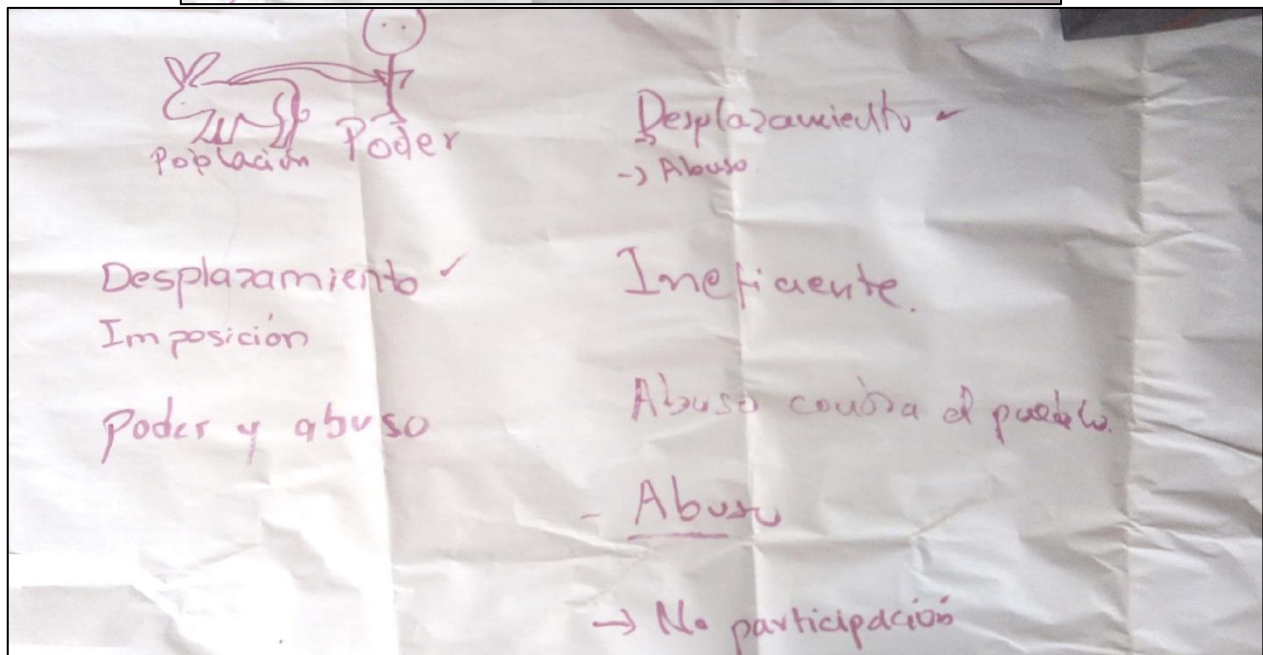 Población Poder
Desplazamiento ✓
Imposición
Poder y abuso
Desplazamiento ✓
-> Abuso
Ineficiente.
Abuso contra el pueblo.
- Abuso
→ No participación